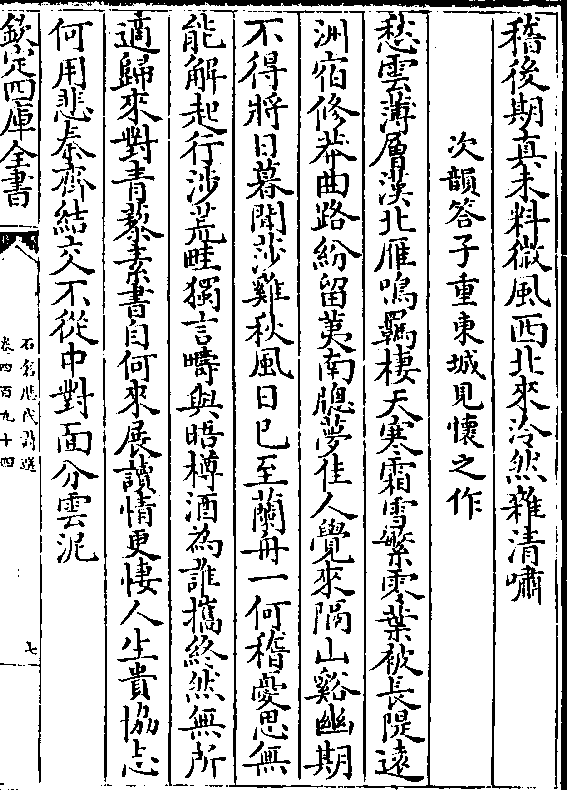 稽後期真未料微風西北來泠然雜清嘯
次韻答子重東城見懷之作
愁雲薄層漢北雁鳴羈棲天寒霜雪繁零葉被長隄遠
洲宿修莽曲路紛留荑南牎夢佳人覺來隔山谿幽期
不得將日暮聞莎雞秋風日已至蘭舟一何稽憂思無
能解起行涉荒畦獨言疇與晤樽酒為誰攜終然無所
適歸來對青藜素書自何來展讀情更悽人生貴協志
何用悲秦齊結交不從中對面分雲泥
欽定四庫全書
石倉歷代詩選
卷四百九十四
七